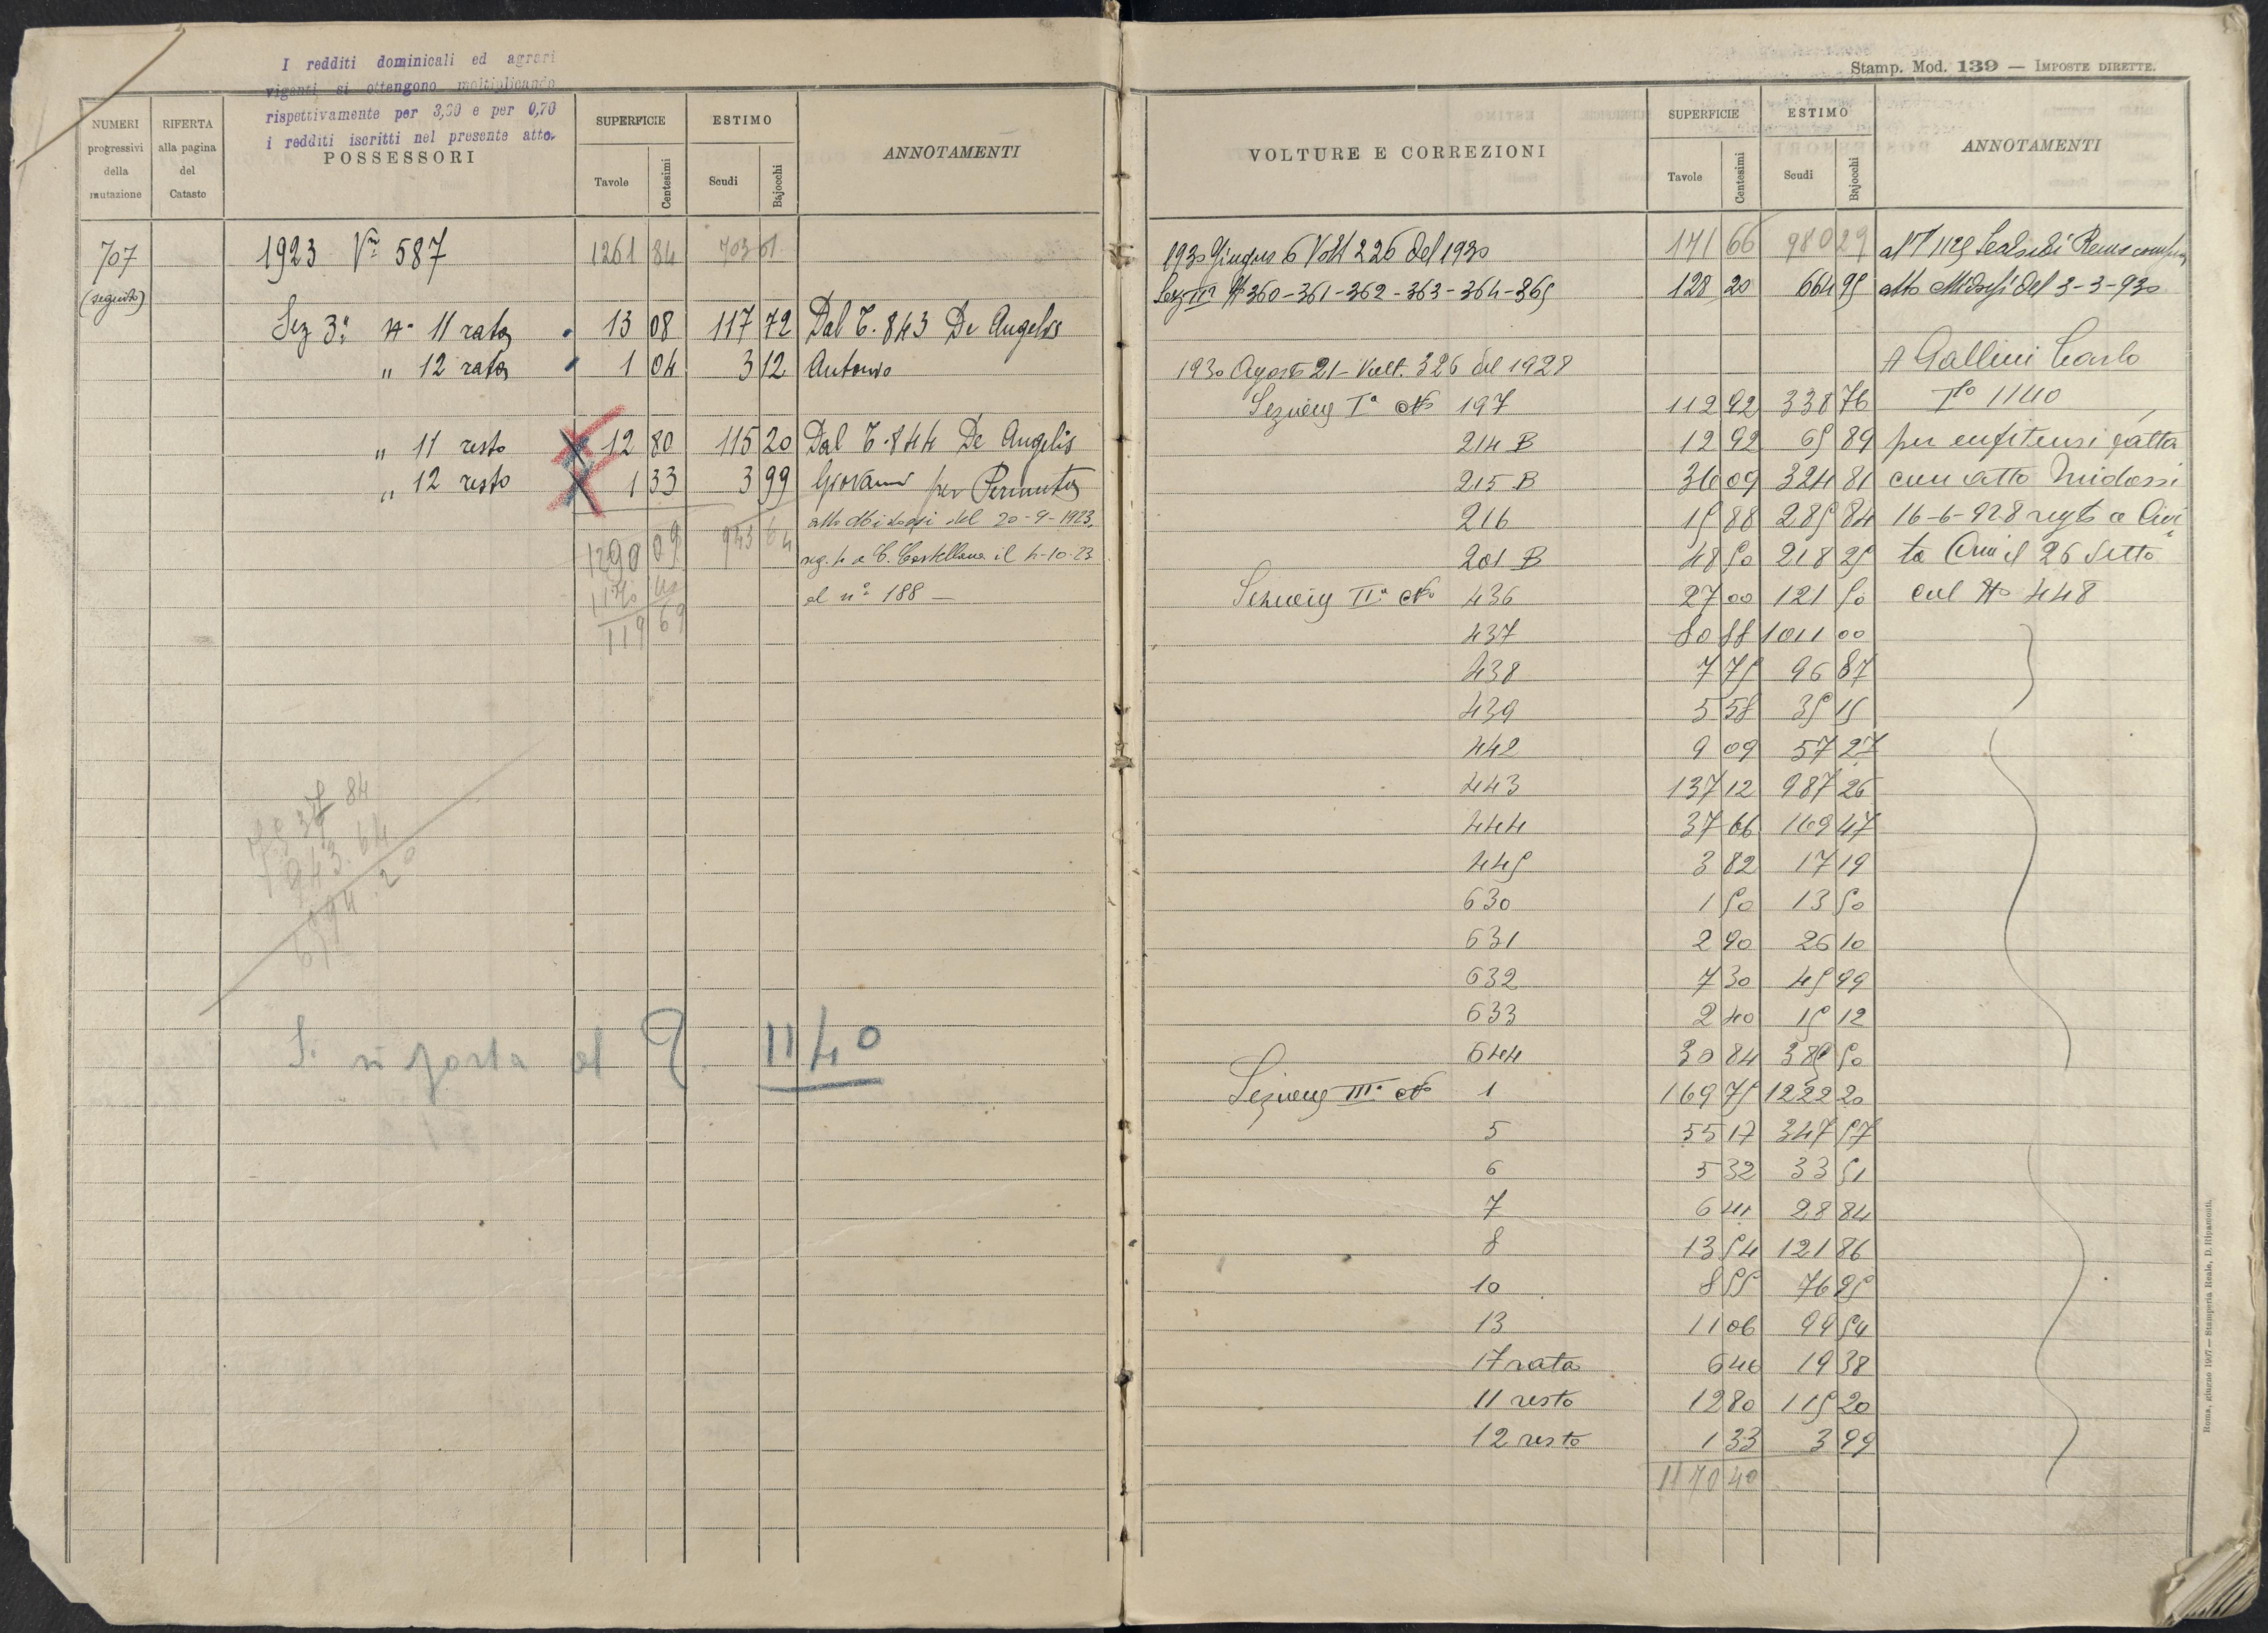 I redditi dominicali ed agrari
vigenti si ottengono moltiplicando
rispettivamente per 3,30 e per 0,70
i redditi iscritti nel presente atto.
NUMERI progressivi della mutazione
RIFERTA alla pagina del Catasto
POSSESSORI
SUPERFICIE Tavole Centesimi
ESTIMO Scudi Bajocchi
ANNOTAMENTI
707 1923 Vª 587 1261 84 703 61
(seguito)
Sez 3ª N° 11 rata 13 08 117 72 Dal T. 843 De Angelis
" 12 rata 1 04 3 12 Antonio
" 11 resto 12 80 115 20 Dal T. 844 De Angelis
" 12 resto 1 33 3 99 Giovanni per Permuta
atto Midossi del 20-9-1923,
1290 09 943 64 reg.to a C. Castellana il 4-10-23
1170 40 al n° 188 —
119 69
84
943.64
Si riporta al T. 1140
Stamp. Mod. 139 — IMPOSTE DIRETTE.
VOLTURE E CORREZIONI
SUPERFICIE Tavole Centesimi
ESTIMO Scudi Bajocchi
ANNOTAMENTI
1930 Giugno 6 Volt 226 del 1930 171 66 980 29 al T 1129
Sez IIª N° 360-361-362-363-364-365 128 20 664 95 atto Midossi del 3-3-930
A Gallini Carlo
1930 Agosto 21 - Volt. 326 del 1928
Sezione Iª N° 197 112 92 338 76 T° 1140
214 B 12 92 65 89 per enfiteusi fatta
215 B 36 09 324 81 con atto Midossi
216 15 88 285 84 16-6-928 regto a Civi
201 B 48 50 218 25 ta Cna il 26 detto
Sezione IIª N° 436 27 00 121 50 col N° 448
437 80 88 1011 00
438 7 75 96 87
439 5 58 35 15
442 9 09 57 27
443 137 12 987 26
444 37 66 169 47
445 3 82 17 19
630 1 50 13 50
631 2 90 26 10
632 7 30 45 99
633 2 40 15 12
644 30 84 385 50
Sezione IIIª N° 1 169 75 1222 20
5 55 17 347 57
6 5 32 33 51
7 6 41 28 84
8 13 54 121 86
10 8 55 76 95
13 11 06 99 54
17 rata 6 46 19 38
11 resto 12 80 115 20
12 resto 1 33 3 99
1170 40
Roma, giugno 1907 — Stamperia Reale, D. Ripamonti.